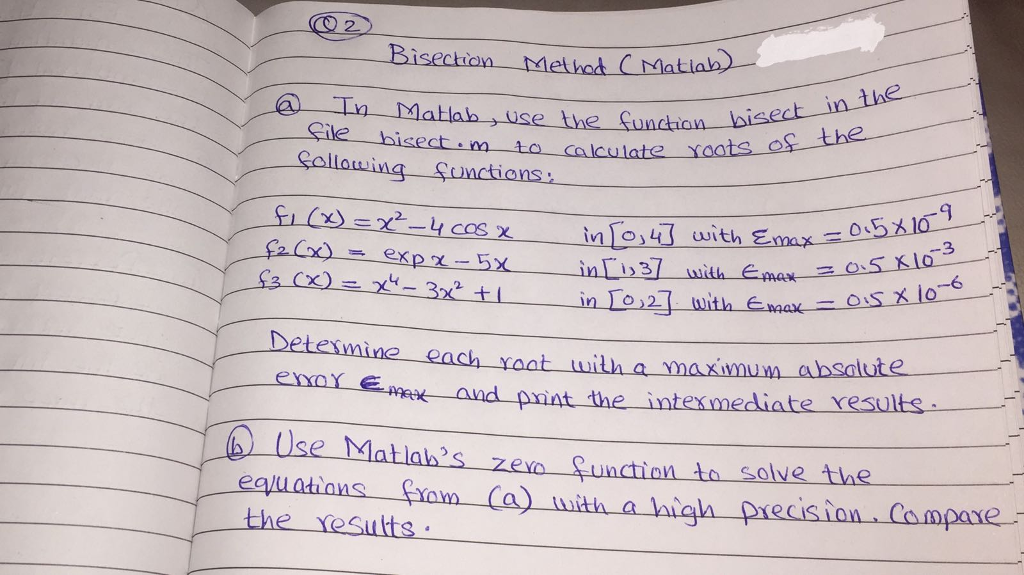 Q2
Bisection Method (Matlab)
(a) In Matlab, use the function bisect in the
file bisect.m to calculate roots of the
following functions:
f1(x) = x² - 4 cos x in [0,4] with Ɛmax = 0.5 x 10⁻⁹
f2(x) = exp x - 5x in [1,3] with Ɛmax = 0.5 x 10⁻³
f3(x) = x⁴ - 3x² + 1 in [0,2] with Ɛmax = 0.5 x 10⁻⁶
Determine each root with a maximum absolute
error Ɛmax and print the intermediate results.
(b) Use Matlab's zero function to solve the
equations from (a) with a high precision. Compare
the results.